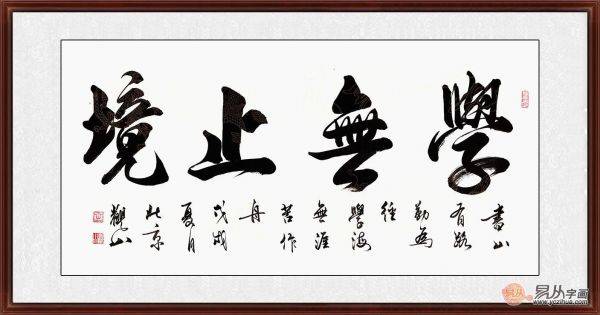 學無止境
書山
有路
勤為
徑
學海
無涯
苦作
舟
戊戌
夏月
北京
觀山
易从
易从字画
www.yczihua.com